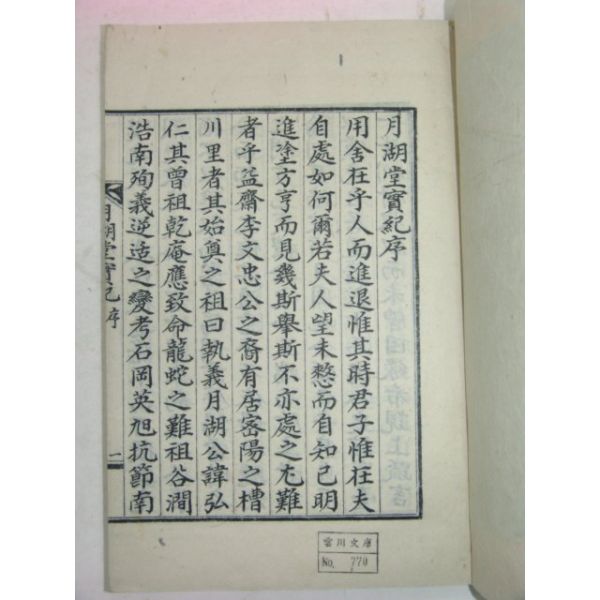 月湖堂實紀序
用舍在乎人而進退惟其時君子惟在夫
自處如何爾若夫人望未憗而自知已明
進塗方亨而見幾斯舉斯不亦處之尤難
者乎益齋李文忠公之裔有居密陽之槽
川里者其始奠之祖曰執義月湖公諱弘
仁其曾祖乾庵應致命龍蛇之難祖谷澗
浩南殉義逆适之變考石岡英旭抗節南
月湖堂實紀 序
一
雲川文庫
No. 770